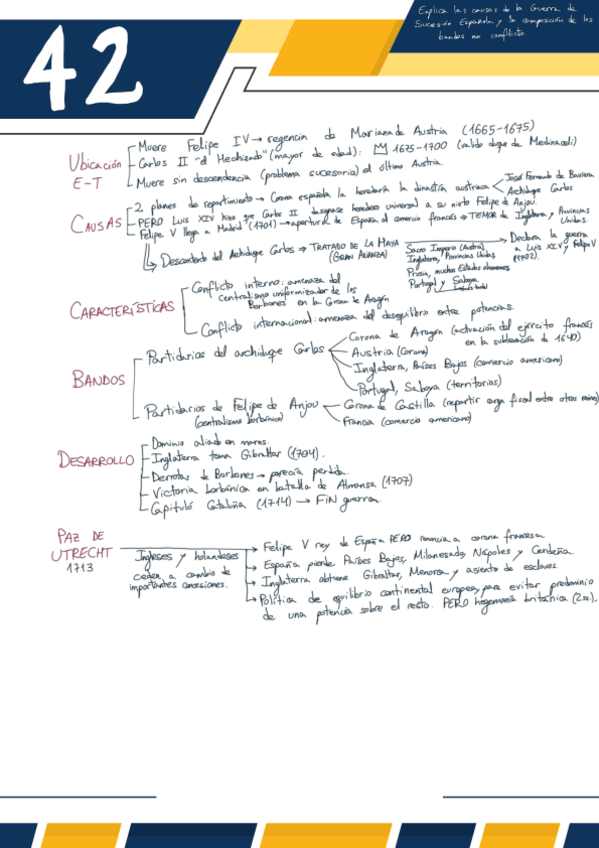 42
Explica las causas de la Guerra de
Sucesión Española y la composición de los
bandos en conflicto
Ubicación
E-T
Muere Felipe IV → regencia de Mariana de Austria (1665-1675)
Carlos II "el Hechizado" (mayor de edad): 1675-1700 (valido duque de Medinaceli)
Muere sin descendencia (problema sucesorio) el último Austria.
CAUSAS
2 planes de repartimiento → Corona española la heredaría la dinastía austriaca
José Fernando de Baviera
Archiduque Carlos
PERO Luis XIV hizo que Carlos II designase heredero universal a su nieto Felipe de Anjou.
Felipe V llega a Madrid (1701) → apertura de España al comercio francés → TEMOR de Inglaterra y Provincias
Unidas.
Descontento del Archiduque Carlos → TRATADO DE LA HAYA
(GRAN ALIANZA)
Sacro Imperio (Austria)
Inglaterra, Provincias Unidas
Prusia, muchos Estados alemanes
Portugal y Saboya
Declara la guerra
a Luis XIV y Felipe V
(1702).
CARACTERÍSTICAS
Conflicto interno: amenaza del
centralismo uniformizador de los
Borbones en la Corona de Aragón
Conflicto internacional: amenaza del desequilibrio entre potencias.
BANDOS
Partidarios del archiduque Carlos
Corona de Aragón (actuación del ejército francés
en la sublevación de 1640)
Austria (Corona)
Inglaterra, Países Bajos (comercio americano)
Portugal, Saboya (territorios)
Partidarios de Felipe de Anjou
(centralismo borbónico)
Corona de Castilla (repartir carga fiscal entre otros reinos)
Francia (comercio americano)
DESARROLLO
Dominio aliado en mares.
Inglaterra toma Gibraltar (1704).
Derrotas de Borbones → parecía perdida.
Victoria borbónica en batalla de Almansa (1707)
Capituló Cataluña (1714) → FIN guerra.
PAZ DE
UTRECHT
1713
Ingleses y holandeses
ceden a cambio de
importantes concesiones.
Felipe V rey de España PERO renuncia a corona francesa
España pierde Países Bajos, Milanesado, Nápoles y Cerdeña.
Inglaterra obtiene Gibraltar, Menorca y asiento de esclavos.
Política de equilibrio continental europea, para evitar predominio
de una potencia sobre el resto. PERO hegemonía británica